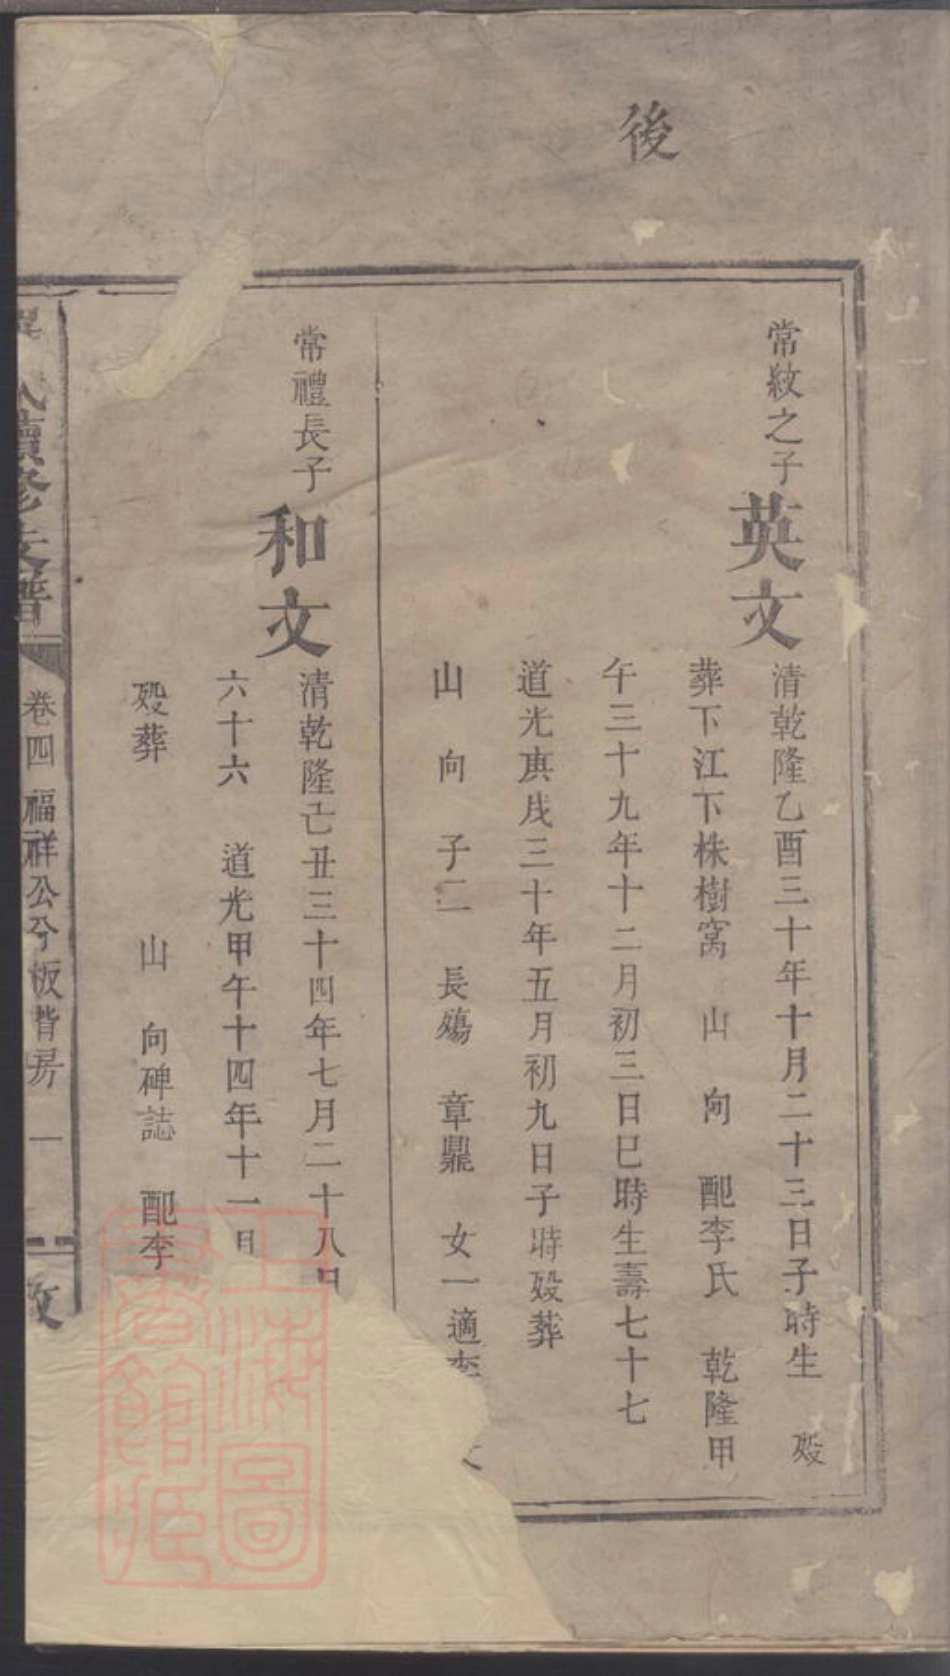 後
常紋之子
英文
清乾隆乙酉三十年十月二十三日子時生 殁
葬下江下株樹窩 山 向 配李氏 乾隆甲
午三十九年十二月初三日巳時生壽七十七
道光庚戌三十年五月初九日子時殁葬
山 向 子二 長殤 章鼎 女一適李
常禮長子
和文
清乾隆己丑三十四年七月二十八日
六十六 道光甲午十四年十一月
殁葬 山 向碑誌 配李
氏續修支譜
卷四 福祥公兮板背房 一
上海圖
書館藏